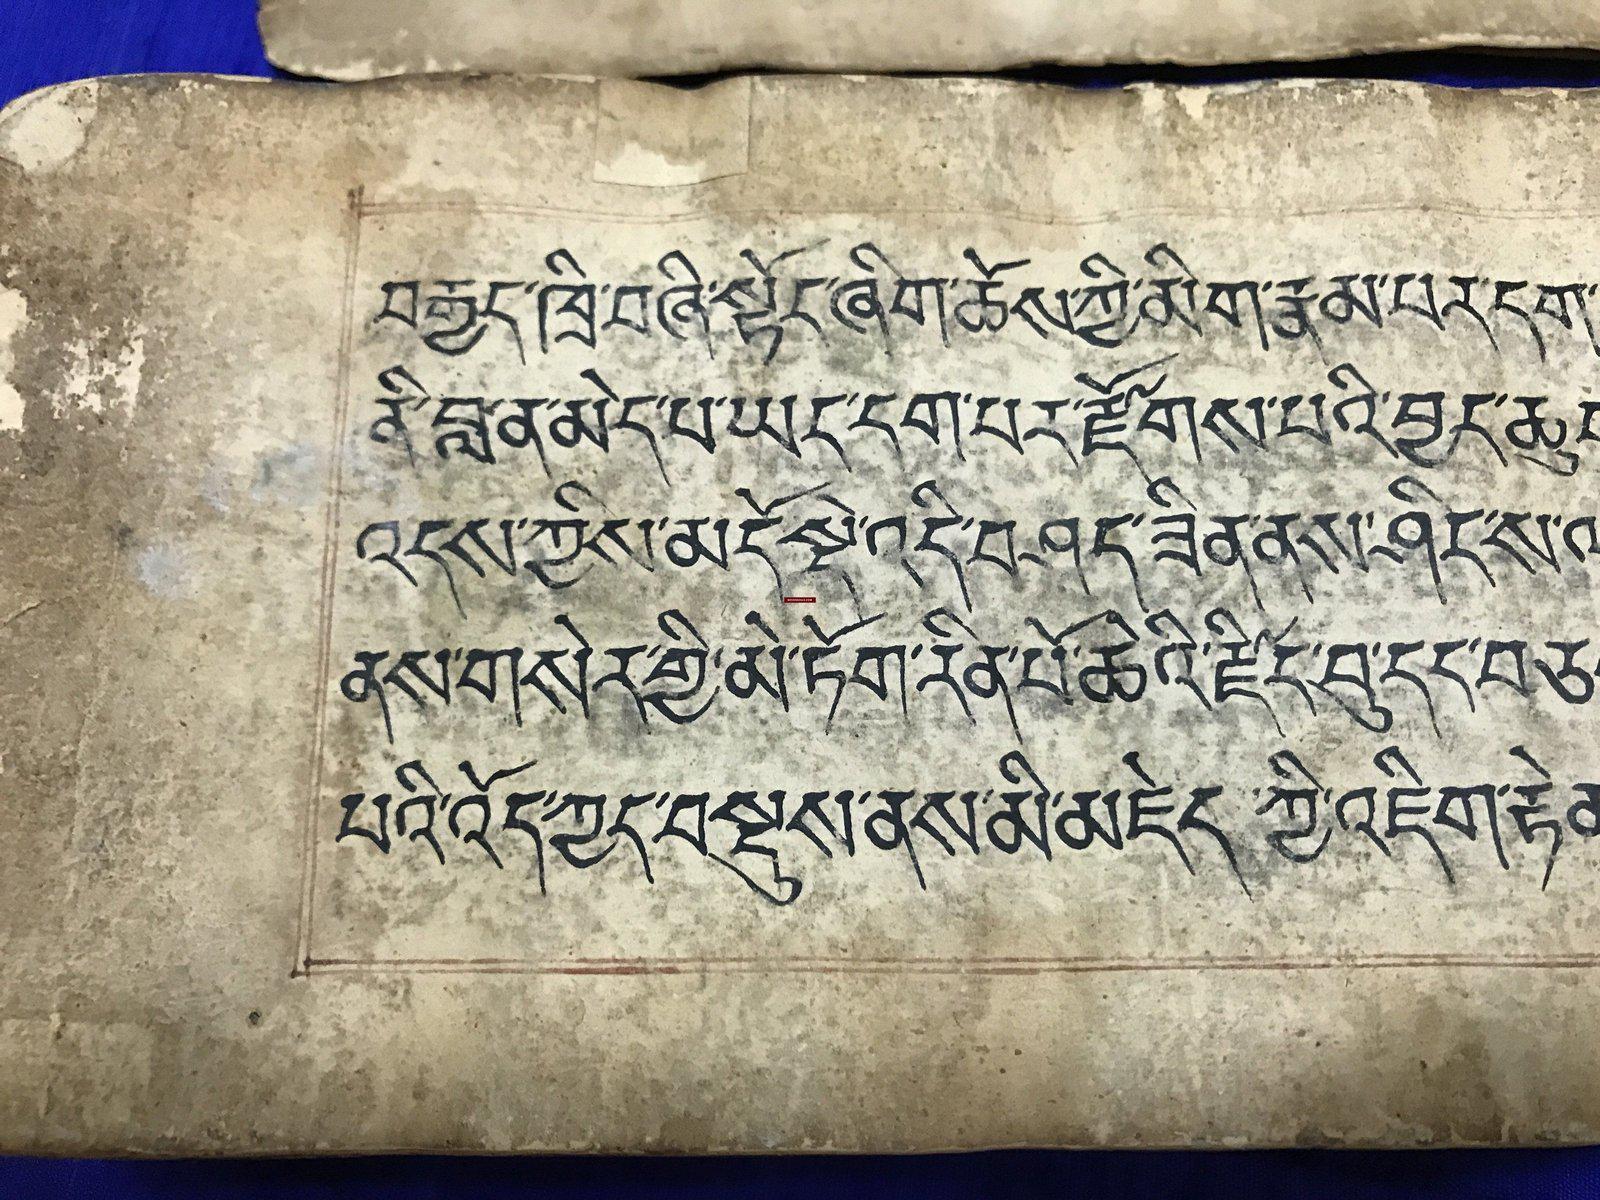 བརྒྱད་ཁྲི་བཞི་སྟོང་ཞིག་ཆོས་ཀྱི་མིག་རྣམ་པར་དག་
ནི་བླ་ན་མེད་པ་ཡང་དག་པར་རྫོགས་པའི་བྱང་ཆུབ
འདས་ཀྱིས་མདོ་སྡེ་འདི་བཤད་ཟིན་ནས་ཤིང་ས་ལ
ནས་གསེར་གྱི་མེ་ཏོག་རིན་པོ་ཆེའི་རྫིང་བུ་དང་བཅ
པའི་འོད་ཀྱང་བསྡུས་ནས་མི་མཇེད་ཀྱི་འཇིག་རྟེན